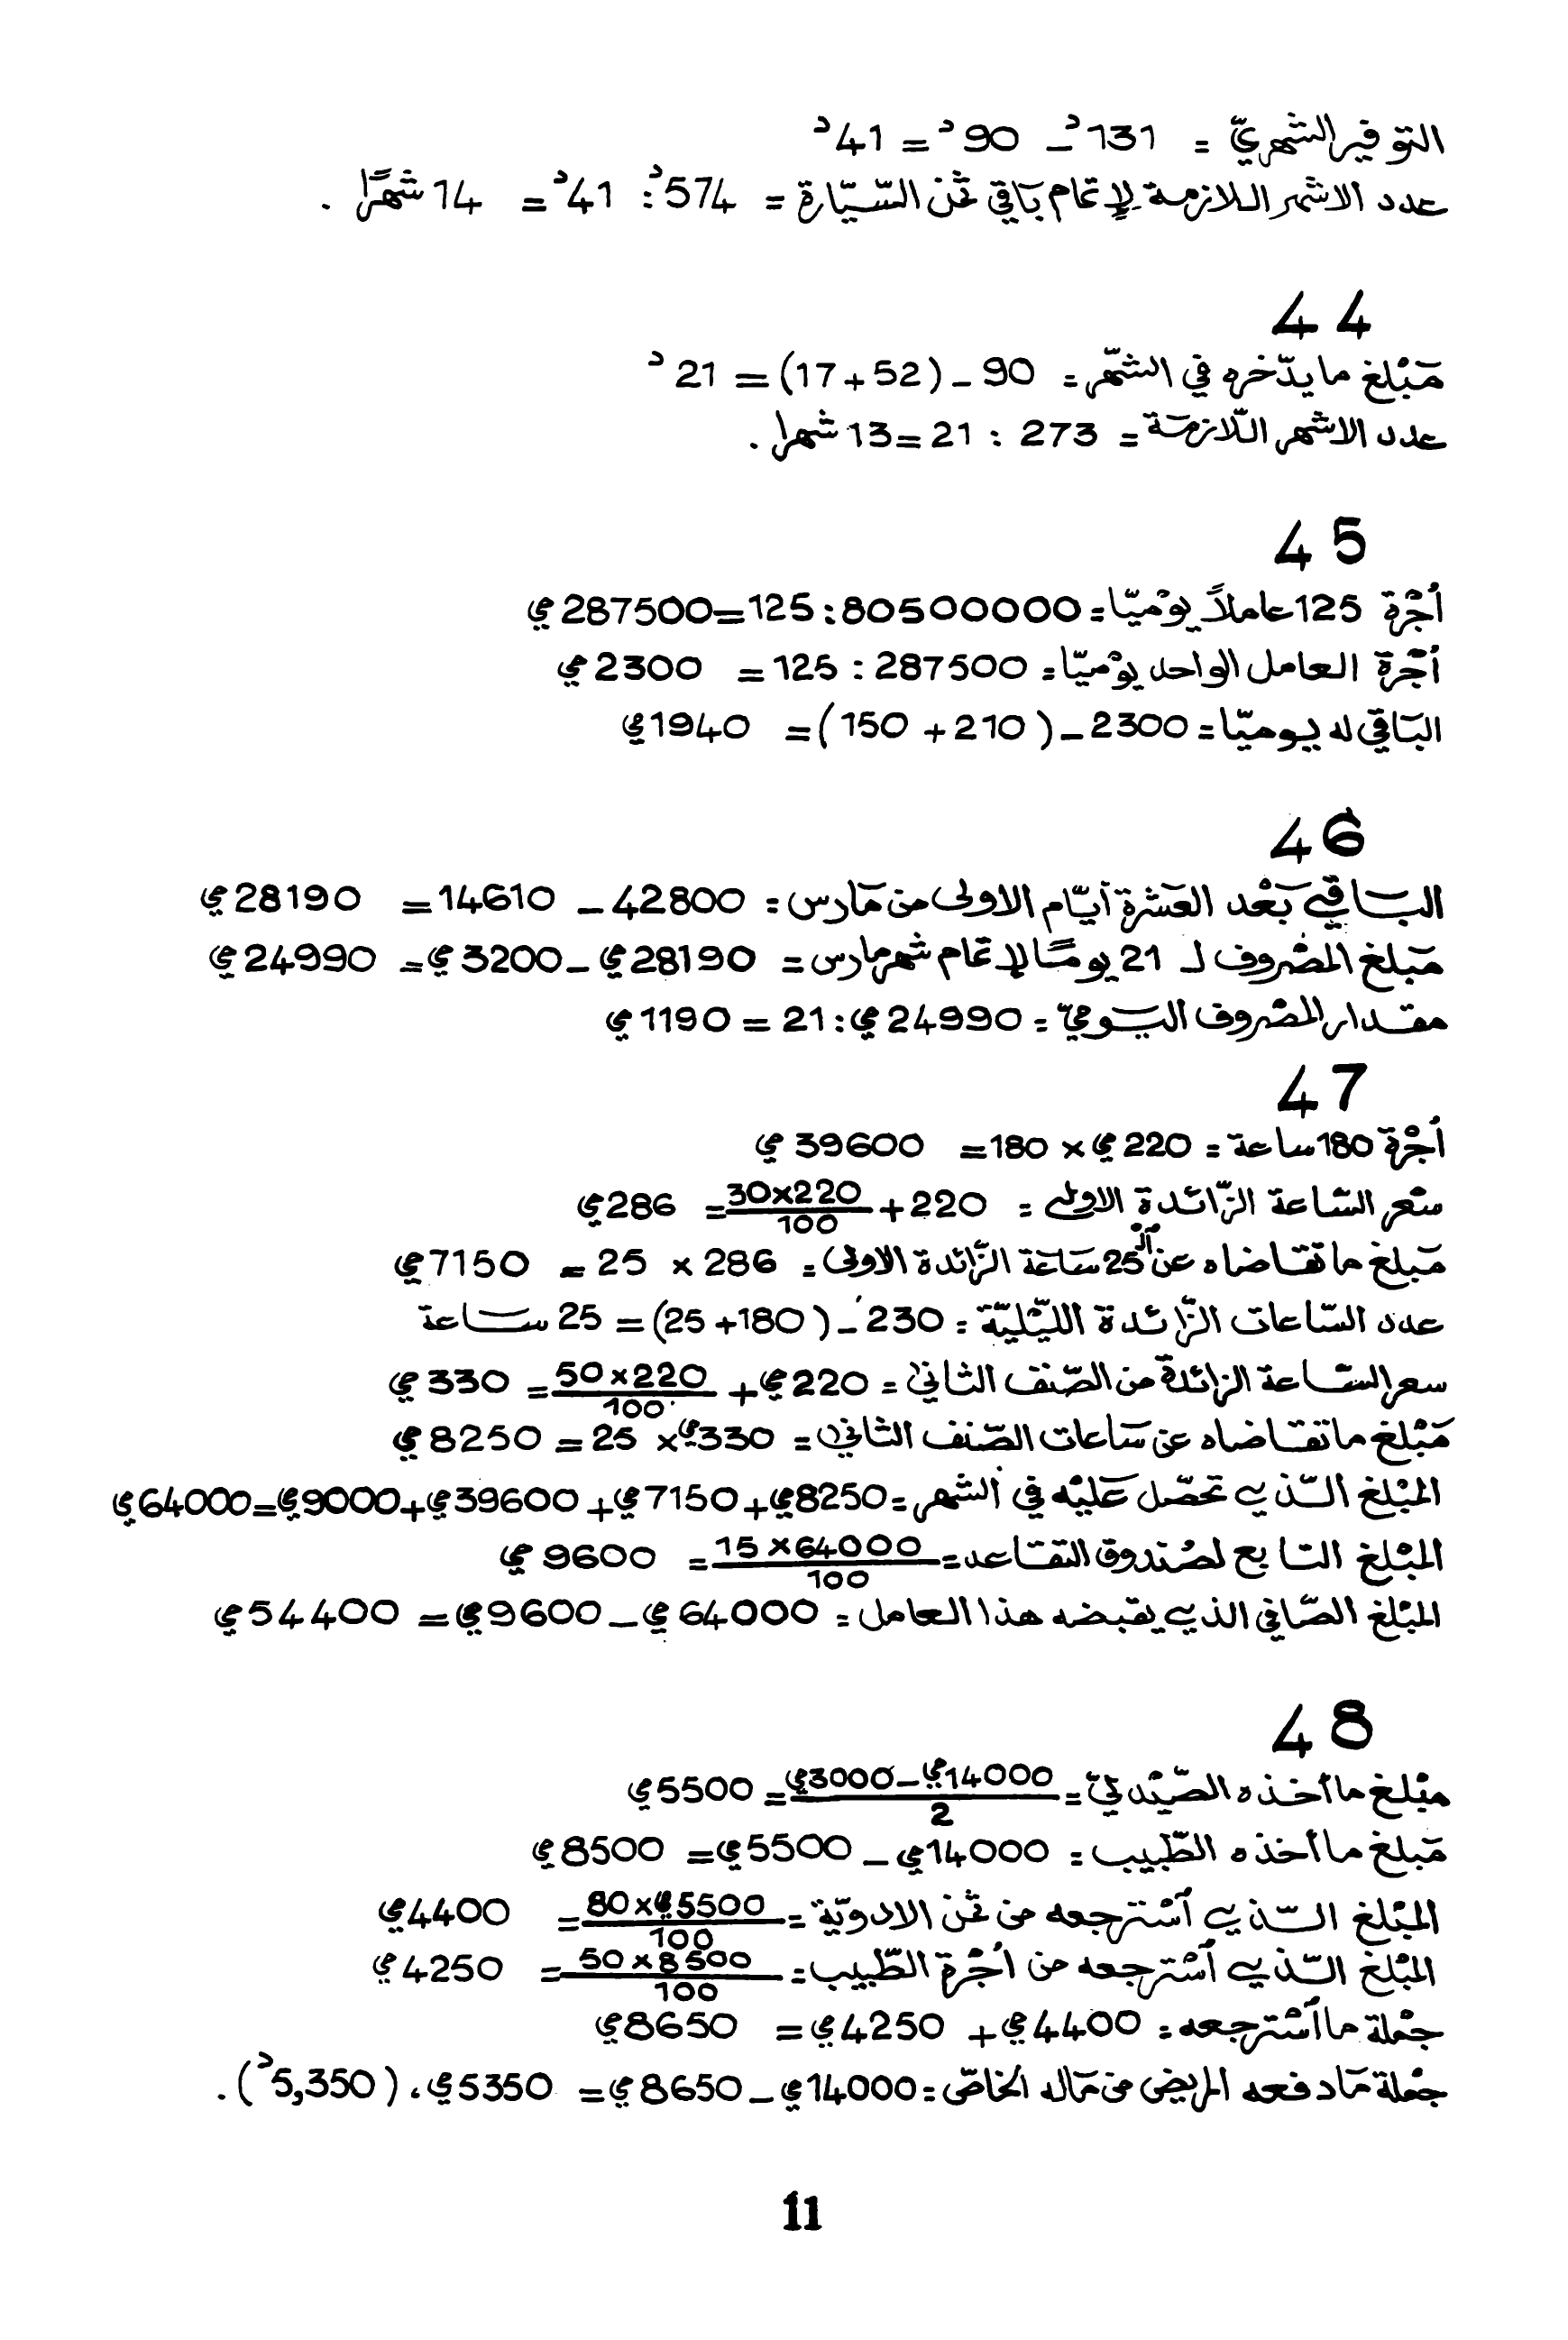 التوفير الشهريّ = 131د – 90د = 41د
عدد الاشهر اللازمة لإتمام باقي ثمن السّيّارة = 574د : 41د = 14 شهرًا .
44
مَبْلغ ما يدّخره في الشّهر = 90 – (52 + 17) = 21د
عدد الاشهر اللّازمة = 273 : 21 = 13 شهرا .
45
أجْرة 125 عاملاً يوْميّا = 80500000 : 125 = 287500ي
أجْرة العامل الواحد يوْميّا = 287500 : 125 = 2300ي
البَاقي له يوميّا = 2300 – (210 + 150) = 1940ي
46
البَاقي بَعْد العَشرة أيّام الاولى من مَارس = 42800 – 14610 = 28190ي
مَبلغ المصْروف لـ 21 يومًا لإتمام شهر مارس = 28190ي – 3200ي = 24990ي
مقدار المصْروف اليوميّ = 24990ي : 21 = 1190ي
47
أجْرة 180 ساعة = 220ي × 180 = 39600ي
سعْر السّاعة الزّائدة الاولى = 220 + 30×220/100 = 286ي
مَبلغ ما تقاضاه عن الـ 25 سَاعَة الزّائدة الاولى = 286 × 25 = 7150ي
عدد السّاعات الزّائدة اللّيْليّة = 230 – (180 + 25) = 25 سَاعة
سعر السّاعة الزائدة من الصّنف الثاني = 220ي + 50×220/100 = 330ي
مَبْلغ ما تقاضاه عن سَاعات الصّنف الثاني = 330ي × 25 = 8250ي
المبْلغ الّذي تحصّل عَليْه في الشهر = 8250ي + 7150ي + 39600ي + 9000ي = 64000ي
المبْلغ التابع لصُندوق التقاعد = 15×64000/100 = 9600ي
المبْلغ الصّافي الذي يقبضه هذا العامل = 64000ي – 9600ي = 54400ي
48
مبْلغ ما أخذه الصّيْدليّ = 14000ي – 3000ي/2 = 5500ي
مَبلغ ما أخذه الطّبيب = 14000ي – 5500ي = 8500ي
المبْلغ الّذي آسْترجعه من ثمن الادويّة = 80×5500ي/100 = 4400ي
المبْلغ الّذي آسْترجعه من أجْرة الطّبيب = 50×8500/100 = 4250ي
جمْلة ما آسْترجعه = 4400ي + 4250ي = 8650ي
جمْلة مَا دفعه المريض من مَاله الخاصّ = 14000ي – 8650ي = 5350ي، (5,350د) .
11